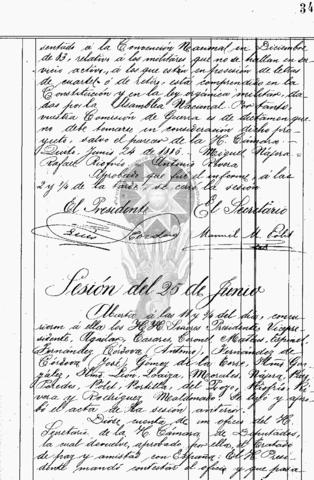 34
sentado á la Convención Nacional en Diciembre
de 83, relativo á los militares que no se hallan en ser-
vicio activo, á los que están en posesión de letras
de cuartel ó de retiro, está comprendido en la
Constitución y en la ley orgánica militar, da-
das por la Asamblea Nacional. Por tanto,
vuestra Comisión de Guerra es de dictamen que
no debe tomarse en consideración dicho pro-
yecto, salvo el parecer de la H. Cámara.
Quito, Junio 20 de 1885. Miguel
Rafael Riofrío Antonio Rivera
Aprobado que fué el informe, á las
2 y ¼ de la tarde, se cerró la sesión
El Presidente El Secretario
Manuel M.
Sesión del 25 de Junio
Abierta á las 11 y ¼ del día, concu-
rieron á ella los H.H. Señores Presidente, Vicepre-
sidente, Aguilar, Casares, Coronel, Matéus, Espinel,
Fernández Córdova Antonio, Fernández de
Córdova José, Gómez de la Torre,
León, Loaiza, Morales, Nájera,
Paredes, Polit, Portilla, del Pozo, Riofrío, Ri-
vera y Rodríguez Maldonado. Se leyó y apro-
bó el acta de la sesión anterior.
Dióse cuenta de un oficio del H.
Secretario de la H. Cámara de Diputados,
la cual devuelve, aprobado por ella, el Tratado
de paz y amistad con España: El H. Presi-
dente mandó contestar el oficio y que pasa